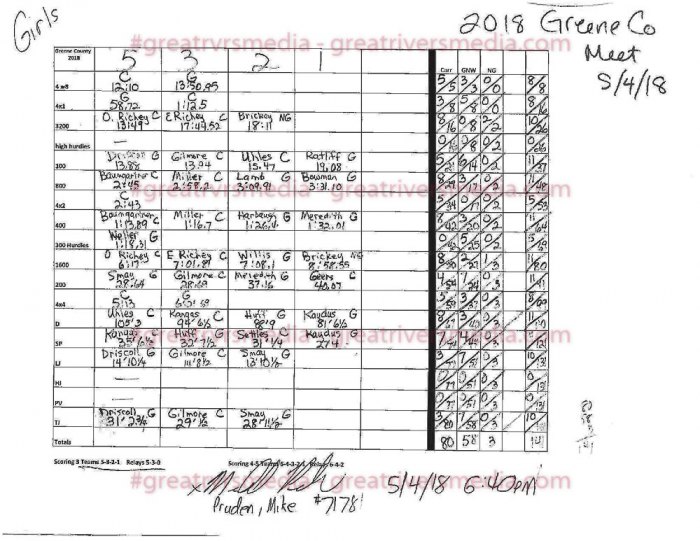 Girls
2018 Greene Co
Meet
5/4/18
#greatrvrsmedia - greatriversmedia.com
Greene County 2018 5 3 2 1 Carr GNW NG
4 x8 C 12:10 G 13:50.95 5/5 3/3 0/0 8/8
4x1 G 58.72 C 1:12.5 3/8 5/8 0/0 8/16
3200 O. Richey C 13:49 E Richey C 17:49.52 Brickey NG 18:11 8/16 0/8 2/2 10/26
high hurdles — 0/16 0/8 0/2
100 Driscoll G 13.88 Gilmore C 13.94 Uhles C 15.47 Ratliff G 19.08 11/37
800 Baumgartner C 2:45 Miller C 2:58.2 Lamb G 3:09.91 Bowman G 3:31.10 11/48
4x2 C 2:43 5/34 0/17 0/2 5/53
400 Baumgartner C 1:13.89 Miller C 1:16.7 Harbaugh G 1:26.4 Meredith G 1:32.01 8/42 3/20 0/2 11/64
300 Hurdles Weller G 1:18.31 0/42 5/25 0/2
1600 O Richey C 6:17 E Richey C 7:01.81 Willis G 7:08.1 Brickey NG 8:58.55 8/50 2/27 1/3 11/80
200 Smay G 28.64 Gilmore C 28.69 Meredith G 37.16 Geers C 40.07 4/54 0/3 11/91
4x4 C 5:13 G 0/3 8/99
D Uhles C 105'3 Kangas C 94'6½ Huff G 88'9 Kaudus G 81'6½ 8/67 3/40 0/3 11/110
SP Kangas C 35'6½ Huff G 32'7½ Settles C 31'1/4 Kaudus G 27'4 7/74 4/44 0/3 11/121
LJ Driscoll G 14'10¼ Gilmore C 14'8½ Smay G 13'10½ 3/77 7/51 0/3 10/131
HJ — 0/77 0/51 0/3 0/131
PV — 0/77 0/51 0/3 0/131
TJ Driscoll G 31'2¾ Gilmore C 29'½ Smay G 28'11½ 3/80 7/58 0/3 10
Totals 80 58 3 141
Scoring 3 Teams 5-3-2-1 Relays 5-3-0 Scoring 4-5 Teams 5-4-3-2-1 Relays 6-4-2
#greatrvrsmedia - greatriversmedia.com
x
5/4/18 6:40pm
Pruden, Mike #71781